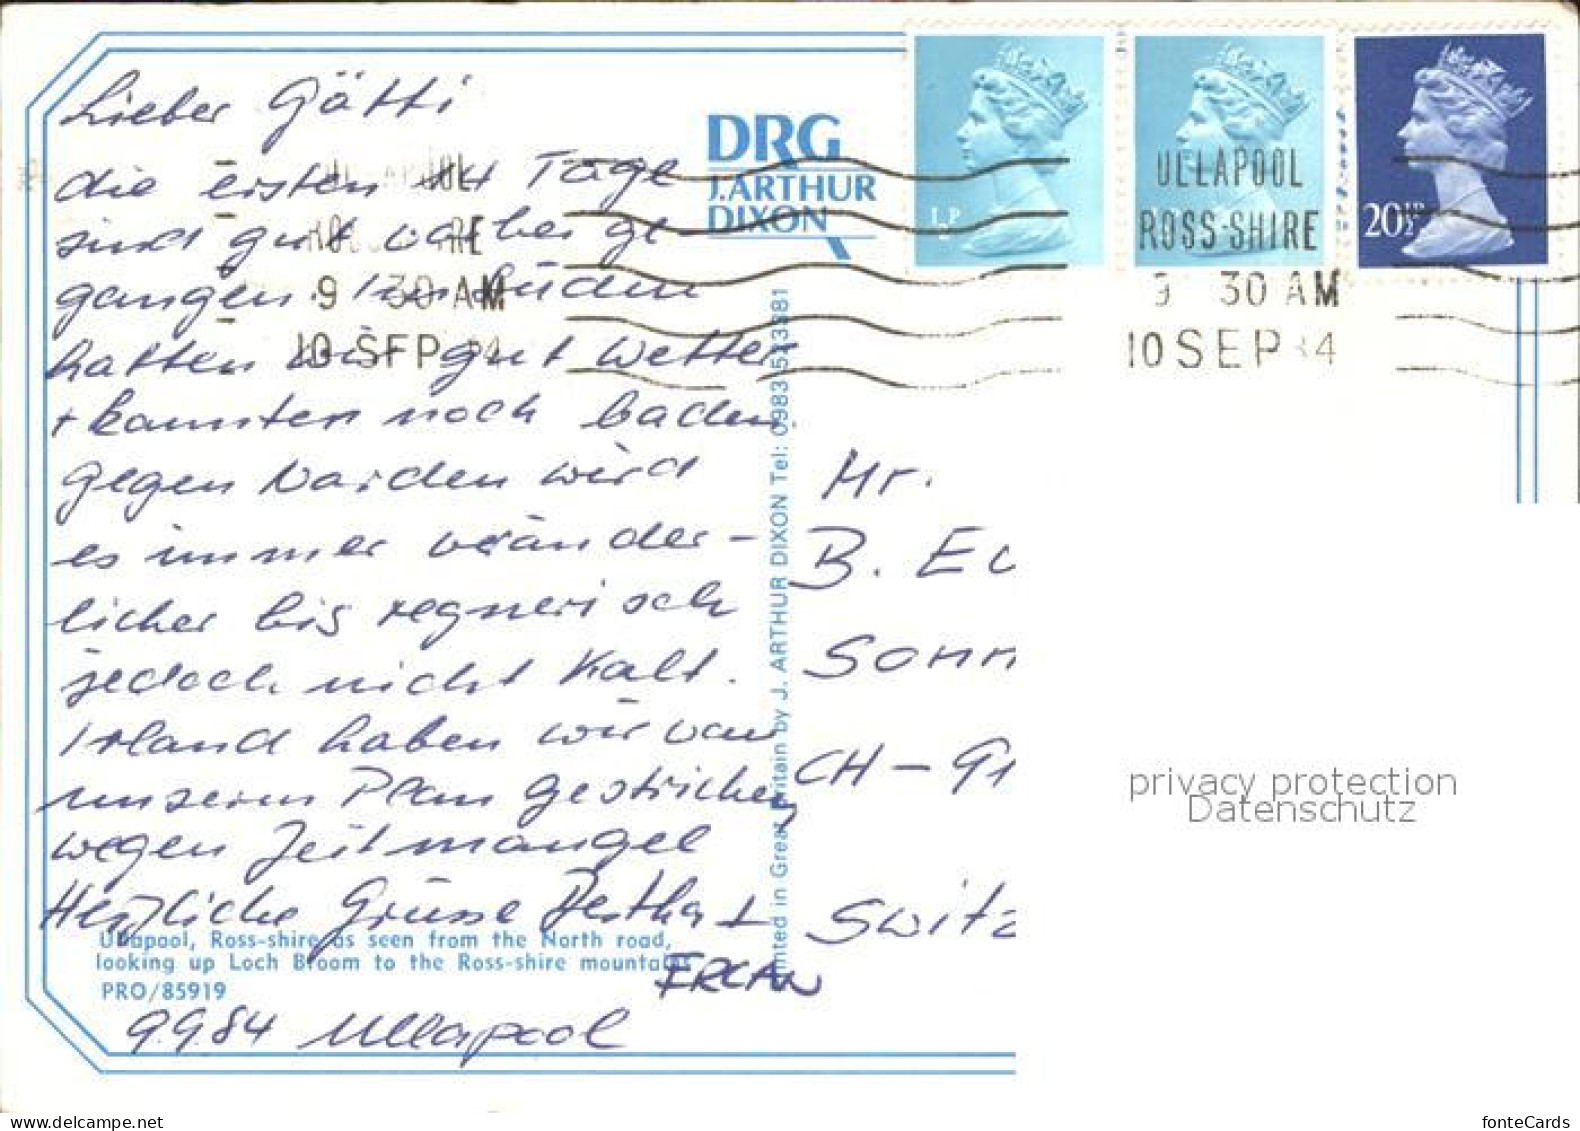 Lieber Götti
die ersten 14 Tage
sind gut vorbei ge
gangen. Im Süden
hatten wir gut Wetter
+ konnten noch baden.
gegen Norden wird
es immer veränder-
licher bis regnerisch
jedoch nicht kalt.
Irland haben wir von
unserem Plan gestrichen
wegen Zeitmangel
Herzliche Grüsse Bertha +
ERCAN
Ullapool, Ross-shire as seen from the North road,
looking up Loch Broom to the Ross-shire mountains
PRO/85919
9.9.84 Ullapool
DRG
J.ARTHUR
DIXON
Printed in Great Britain by J. ARTHUR DIXON Tel: 0983 523381
½P
20½P
ULLAPOOL
ROSS-SHIRE
9 30 AM
10 SEP 84
ULLAPOOL
ROSS-SHIRE
9 30 AM
10 SEP 84
Hr.
B. E
Sonn
CH-91
Switz
privacy protection
Datenschutz
www.delcampe.net
fonteCards